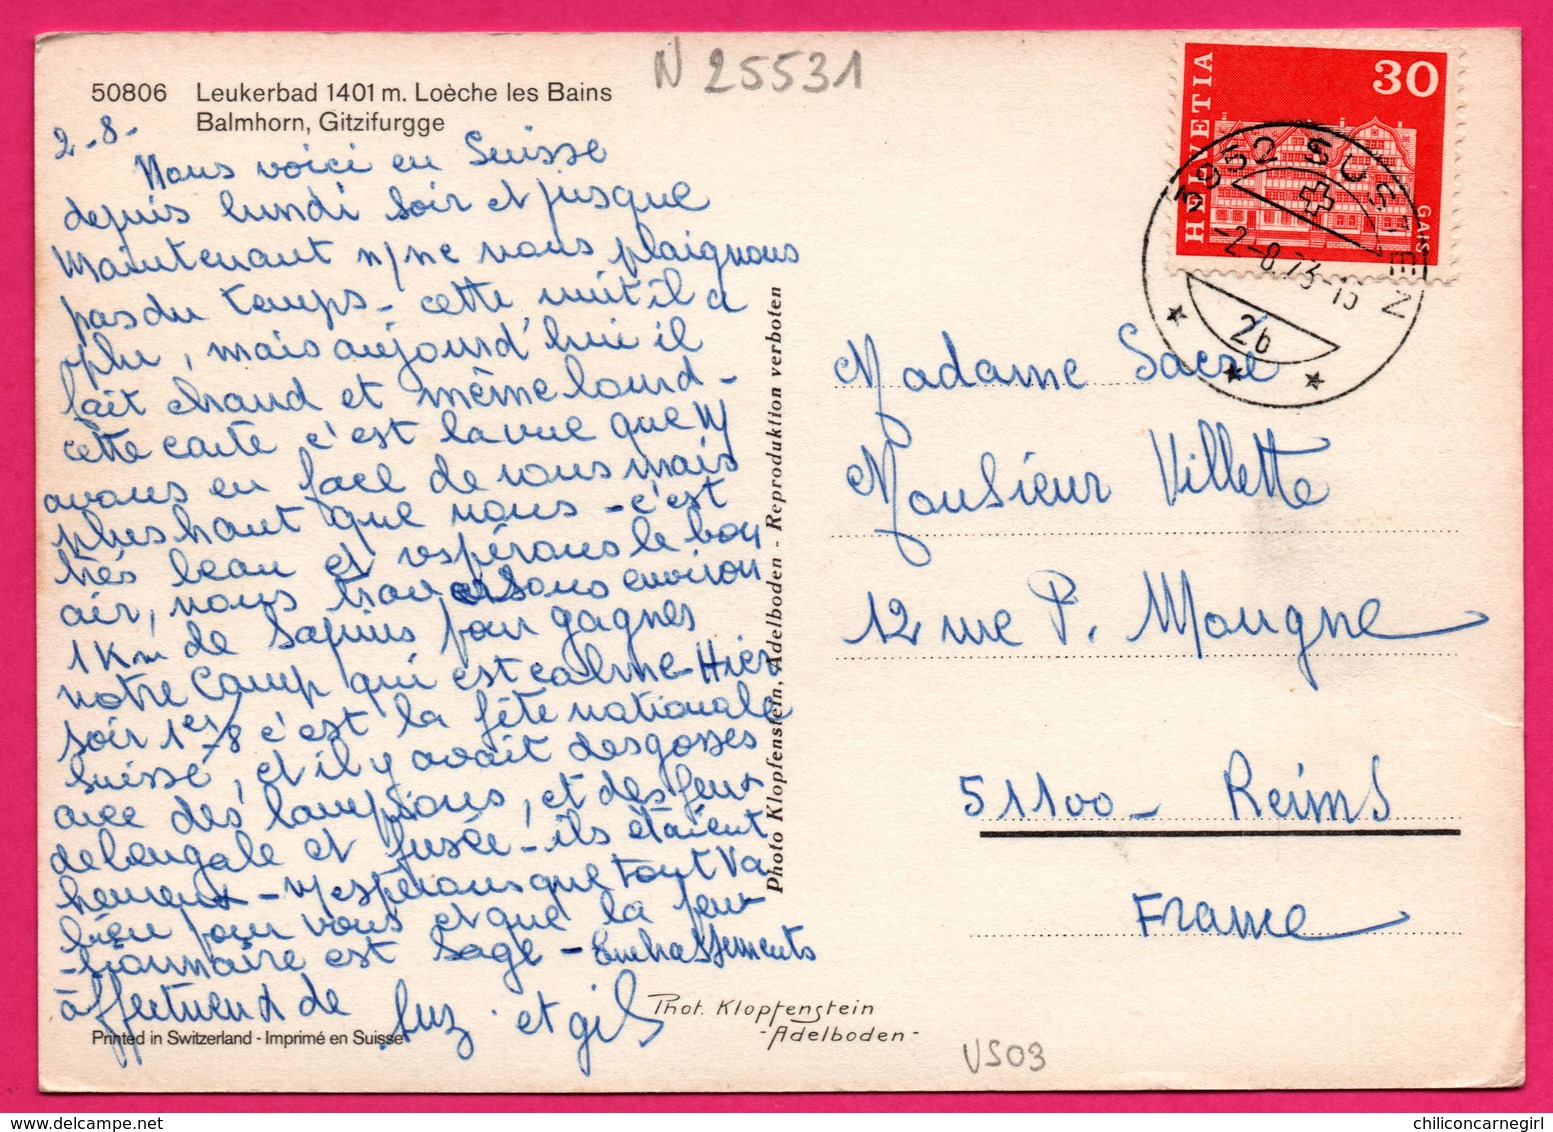 N 25531
50806 Leukerbad 1401 m. Loèche les Bains
Balmhorn, Gitzifurgge
2-8-
Nous voici en Suisse
depuis lundi soir et jusque
maintenant n/ne nous plaignons
pas du temps - cette nuit il a
plu, mais aujourd'hui il
fait chaud et même lourd -
cette carte c'est la vue que n/
avons en face de nous mais
plus haut que nous - c'est
très beau et respérons le bon
air, nous traversons environ
1 Km de sapins pour gagner
notre camp qui est calme - Hier
soir 1er-8 c'est la fête nationale
suisse, et il y avait des gosses
avec des lampions, et des feux
de bengale et fusée - ils étaient
heureux - n/espérons que tout va
bien pour vous et que la peu-
-tionnaire est sage - Embrassements
affectueux de Luz et gils
Printed in Switzerland - Imprimé en Suisse
Photo Klopfenstein, Adelboden - Reproduktion verboten
Phot. Klopfenstein
-Adelboden-
VS03
HELVETIA
30
GAIS
3952 SUSTEN
-2.-8.73-15
2b
Madame Sacré
Monsieur Villette
12 rue P. Mougne
51100 - Reims
France
chiliconcarnegirl / delcampe.net